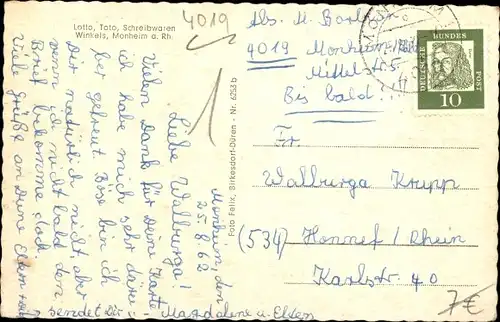 Lotto, Toto, Schreibwaren
Winkels, Monheim a. Rh.
4019
Monheim, den
25.8.62
Liebe Walburga!
Vielen Dank für Deine Karte
ich habe mich sehr darü-
ber gefreut. Böse bin ich
Dir natürlich nicht, aber
wenn ich nicht bald den
Brief bekomme, doch
Viele Grüße an Deine Eltern
sendet Dir Magdalene u. Eltern
Foto Felix, Birkesdorf-Düren - Nr. 6253 b
Abs. M.
4019 Monheim/Rh.
Mittelstr. 5
Bis bald!
DEUTSCHE BUNDES POST
10
Fr.
Walburga Krupp
(534) Honnef / Rhein
Karlstr. 40
7€